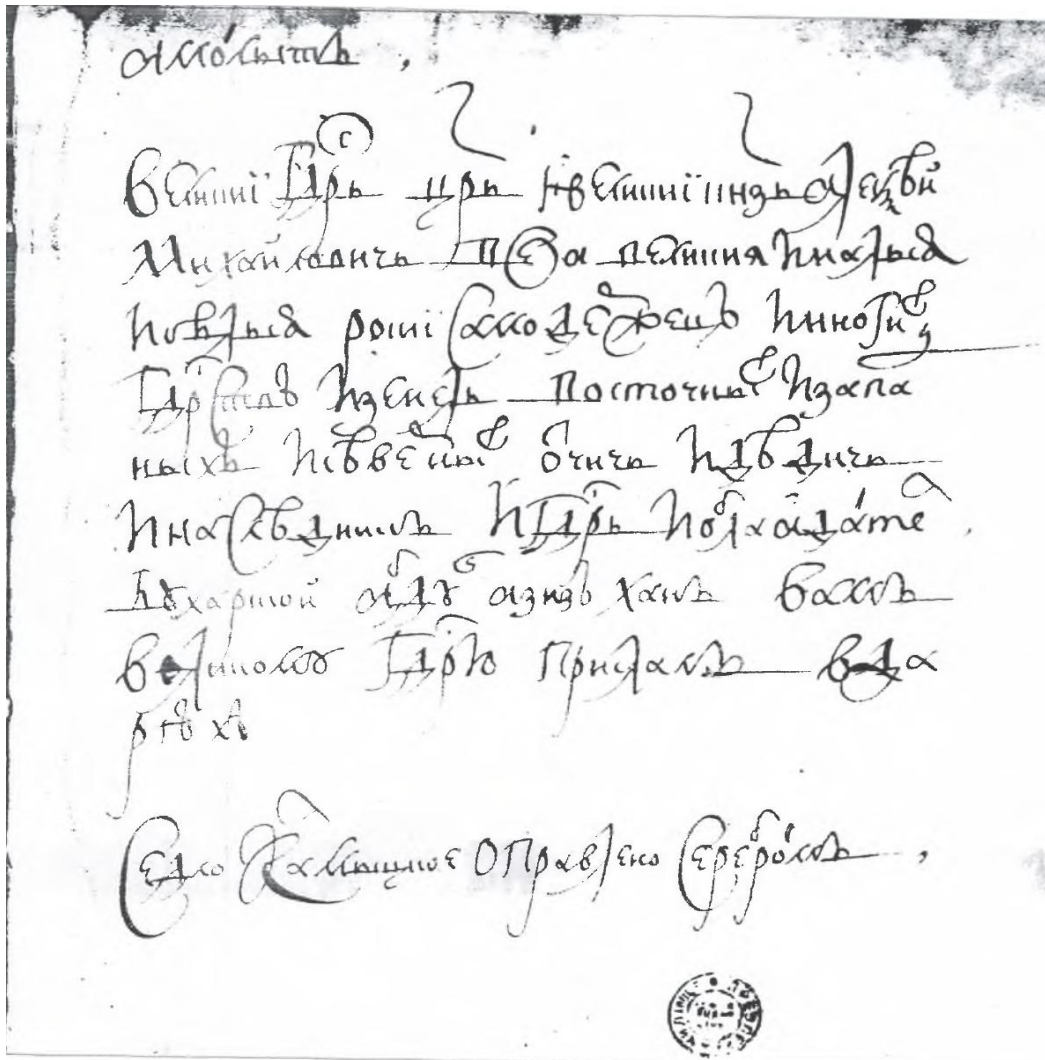 а молыт,
великиї гдрь црь и великиї кнзь алеѯѣй
михайловичь всеа великия и малыя
и бѣлыя росиї самодержець и многих
гдрствъ и земель восточных и запа
ных и сѣверных отчичь и дѣдичь
и наслѣдникъ и гдрь и облаадатель
бухарской абду азизъ ханъ вамъ
великому гдрю прислалъ в да
рѣхъ
седло камышное оправлено серебромъ,